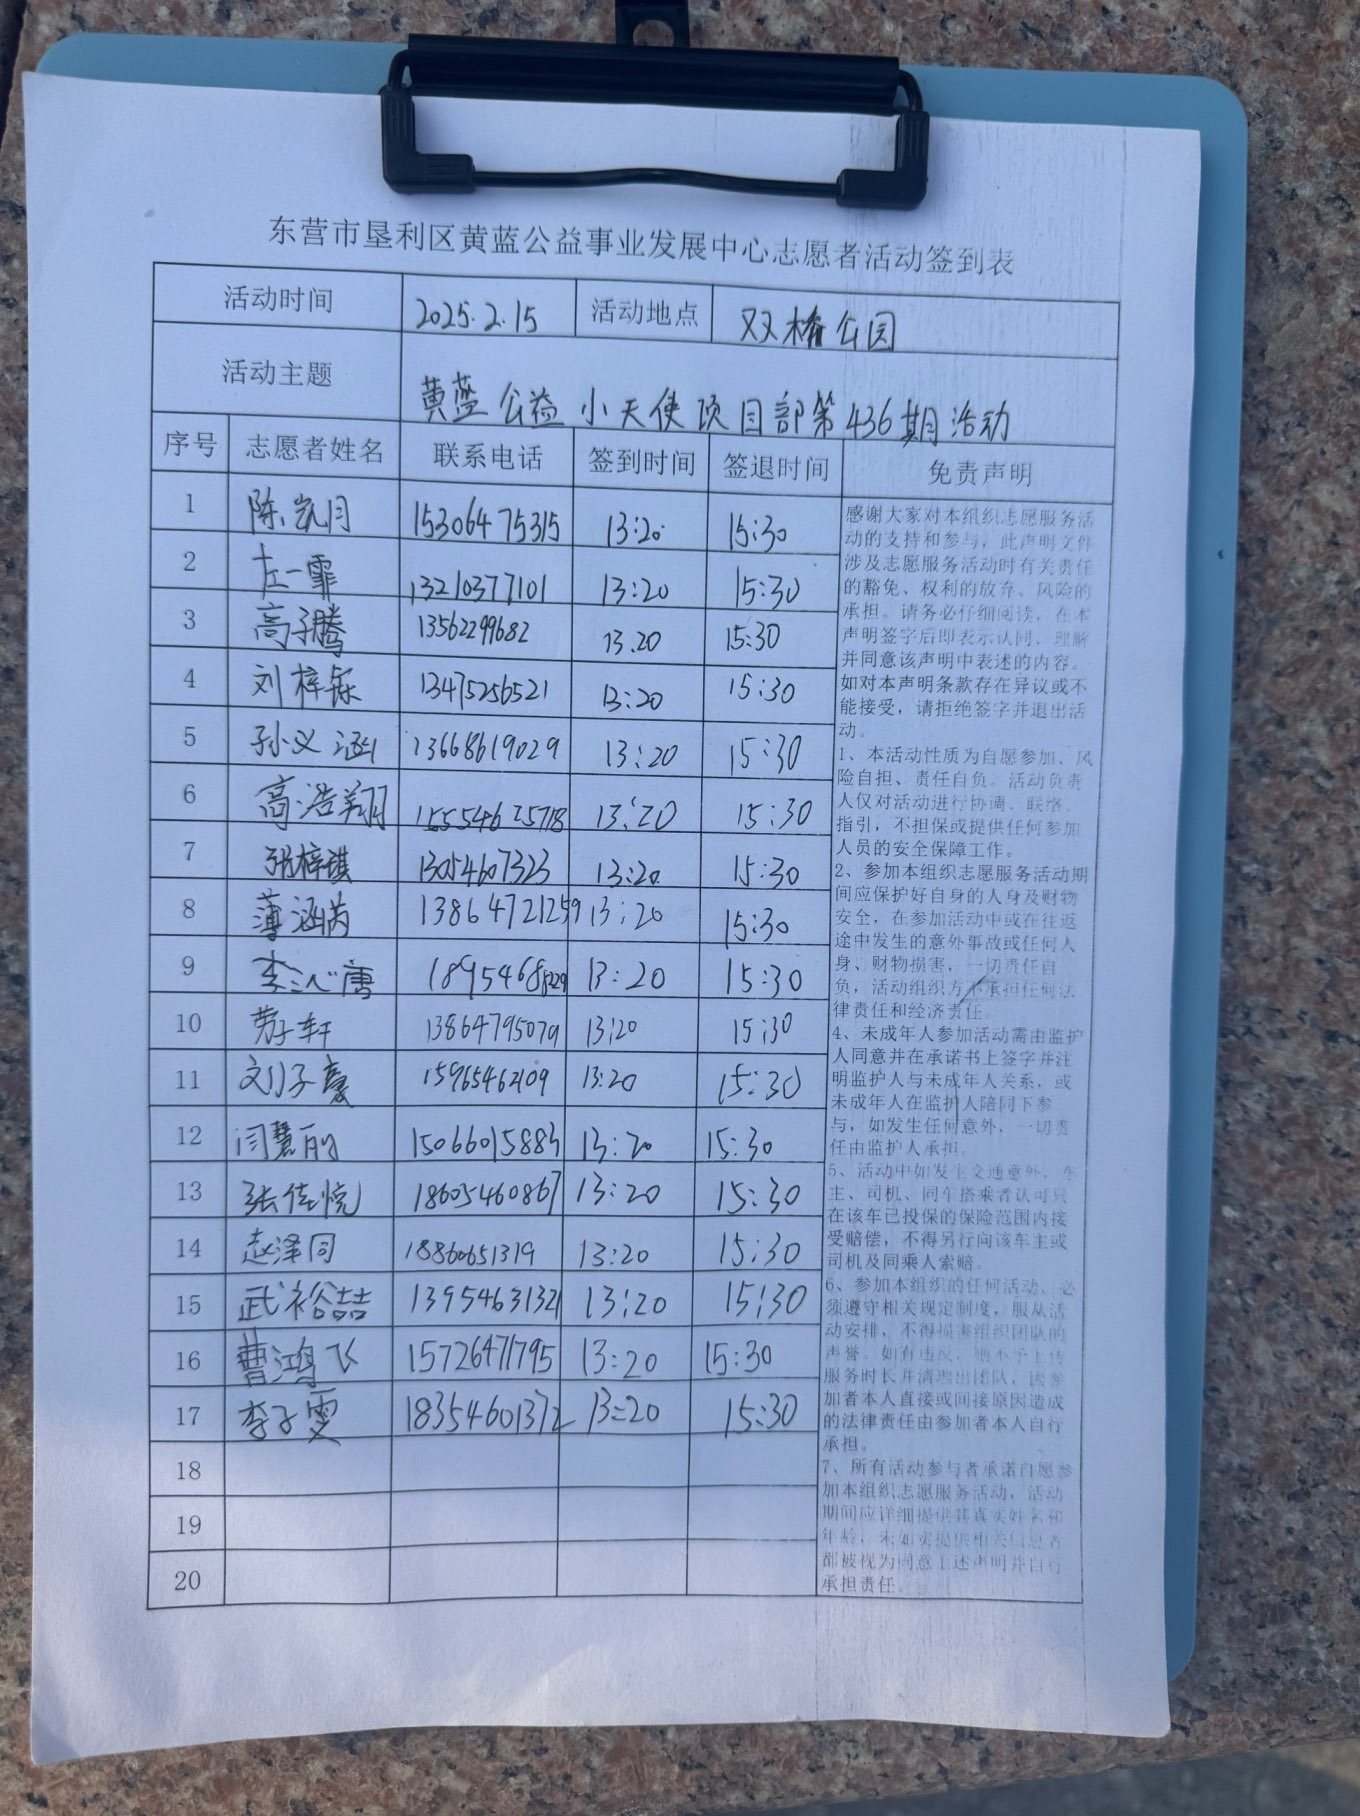 东营市垦利区黄蓝公益事业发展中心志愿者活动签到表
活动时间 2025.2.15 活动地点 双榕公园
活动主题 黄蓝公益小天使项目部第436期活动
序号 志愿者姓名 联系电话 签到时间 签退时间 免责声明
1 陈凯月 15306475315 13:20 15:30
2 左一霏 13210377101 13:20 15:30
3 高子腾 13562299682 13.20 15:30
4 刘梓铄 13475256521 13:20 15:30
5 孙义涵 13668619029 13:20 15:30
6 高浩翔 13:20 15:30
7 张梓祺 13054607323 13:20 15:30
8 薄涵芮 13864721259 13:20 15:30
9 李沁唐 13:20 15:30
10 劳子轩 13864795079 13:20 15:30
11 刘子豪 15965462109 13:20 15:30
12 闫慧 15066015883 13:20 15:30
13 张佳悦 18605460867 13:20 15:30
14 赵泽同 18860651319 13:20 15:30
15 武裕喆 13954631321 13:20 15:30
16 曹鸿飞 15726471795 13:20 15:30
17 李子雯 18354601372 13:20 15:30
18
19
20
感谢大家对本组织志愿服务活
动的支持和参与，此声明文件
涉及志愿服务活动时有关责任
的豁免、权利的放弃、风险的
承担。请务必仔细阅读，在本
声明签字后即表示认同、理解
并同意该声明中表述的内容。
如对本声明条款存在异议或不
能接受，请拒绝签字并退出活
动。
1、本活动性质为自愿参加、风
险自担、责任自负。活动负责
人仅对活动进行协调、联络、
指引，不担保或提供任何参加
人员的安全保障工作。
2、参加本组织志愿服务活动期
间应保护好自身的人身及财物
安全，在参加活动中或在往返
途中发生的意外事故或任何人
身、财物损害，一切责任自
负，活动组织方不承担任何法
律责任和经济责任。
4、未成年人参加活动需由监护
人同意并在承诺书上签字并注
明监护人与未成年人关系，或
未成年人在监护人陪同下参
与，如发生任何意外，一切责
任由监护人承担。
5、活动中如发生交通意外，车
主、司机、同车搭乘者认可只
在该车已投保的保险范围内接
受赔偿，不得另行向该车主或
司机及同乘人索赔。
6、参加本组织的任何活动，必
须遵守相关规定制度，服从活
动安排，不得损害组织团队的
声誉。如有违反，则不予上传
服务时长并清理出团队，因参
加者本人直接或间接原因造成
的法律责任由参加者本人自行
承担。
7、所有活动参与者承诺自愿参
加本组织志愿服务活动，活动
期间应详细提供其真实姓名和
年龄，未如实提供相关信息者
都被视为同意上述声明并自行
承担责任。